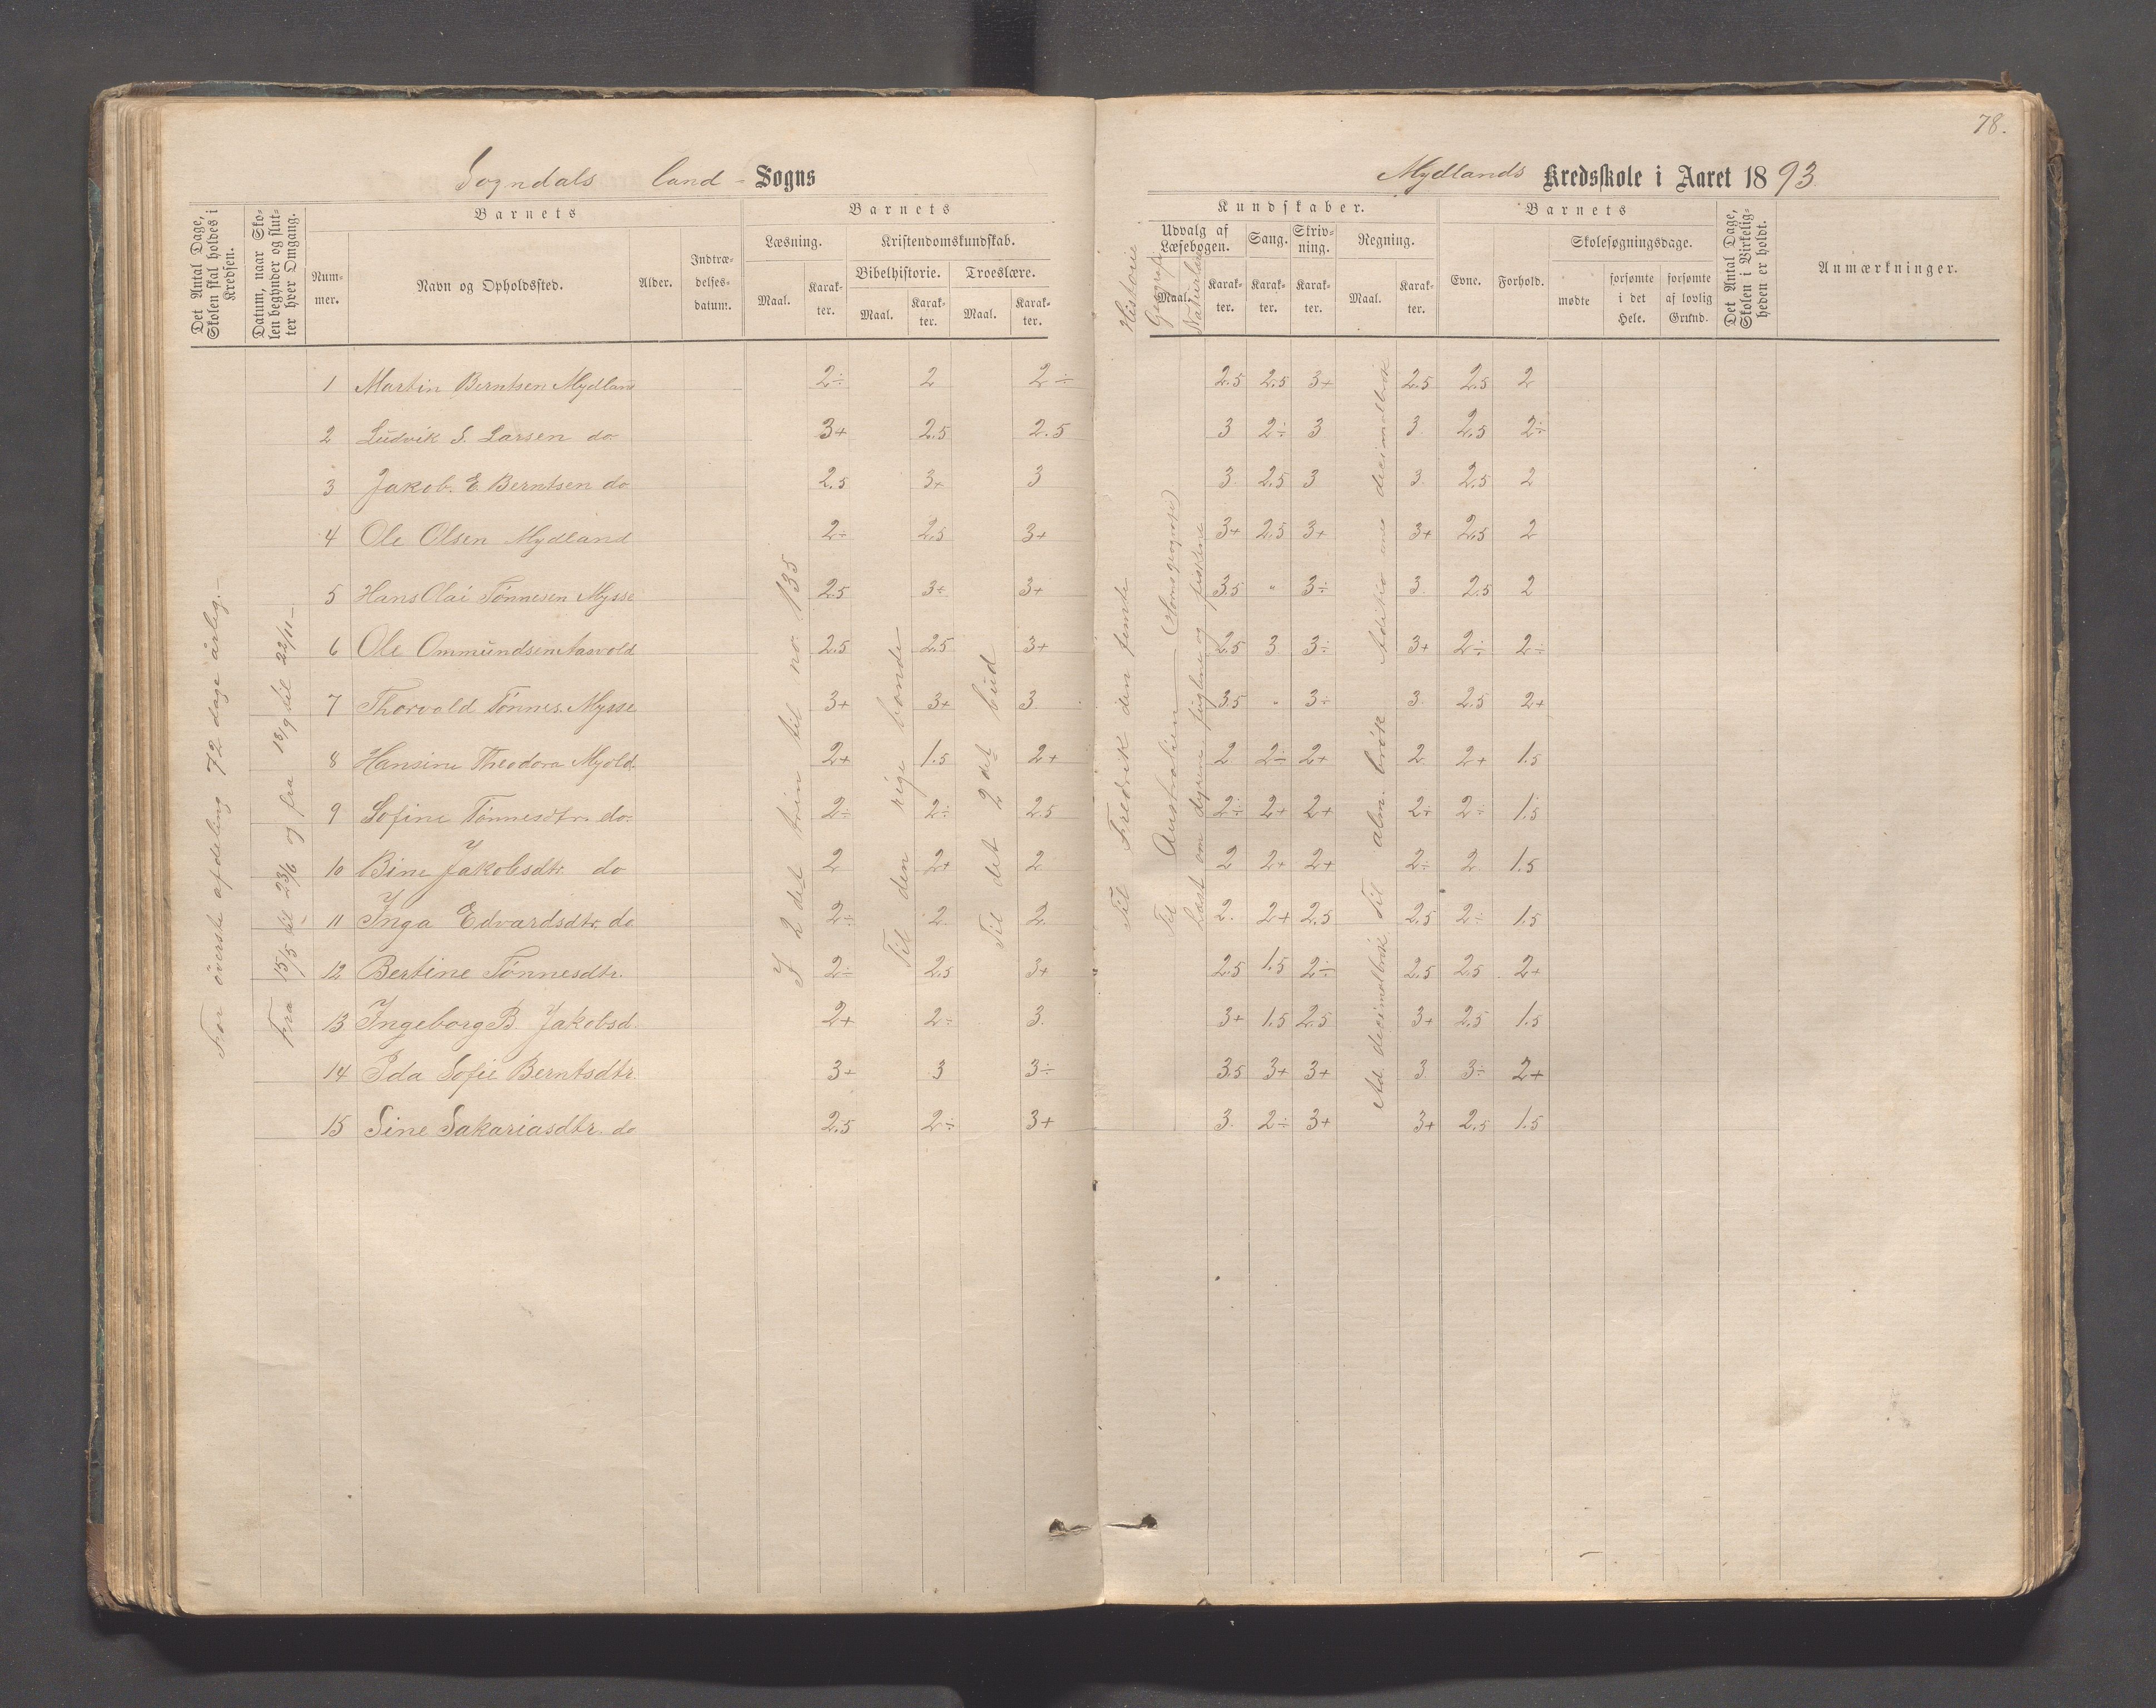 78.
Sogndals land - Sogns
Mydlands Kredsskole i Aaret 1893
Det Antal Dage, Skolen skal holdes i Kredsen.
Datum, naar Skolen begynder og slutter hver Omgang.
Barnets
Nummer.
Navn og Opholdssted.
Alder.
Indtrædelsesdatum.
Barnets
Læsning.
Maal.
Karakter.
Kristendomskundskab.
Bibelhistorie.
Maal.
Karakter.
Troeslære.
Maal.
Karakter.
Kundskaber.
Historie
Geografi
Naturlære
Udvalg af Læsebogen.
Maal.
Karakter.
Sang.
Karakter.
Skrivning.
Karakter.
Regning.
Maal.
Karakter.
Barnets
Evne.
Forhold.
Skolesøgningsdage.
mødte
forsømte i det Hele.
forsømte af lovlig Grund.
Det Antal Dage, Skolen i Virkeligheden er holdt.
Anmærkninger.
For överste afdeling 72 dage årlig.-
Fra 15/5 til 23/6 og fra 13/9 til 22/11 -
I 2 det trin til no. 135
Til den rige bonde
Til det 2 det bud
Til Fredrik den femte
Til Australien
Læst om dyrene, fuglene og fiskene
Ad. decimalbrök. Til alm. brök. Aditio med decimalbrök
1 Martin Berntsen Mydland 2÷ 2 2÷ 2.5 2.5 3+ 2.5 2.5 2
2 Ludvik S. Larsen do 3+ 2.5 2.5 3 2÷ 3 3 2.5 2÷
3 Jakob. E Berntsen do 2.5 3+ 3 3 2.5 3 3 2.5 2
4 Ole Olsen Mydland 2÷ 2.5 3+ 3+ 2.5 3+ 3+ 2.5 2
5 Hans Olai Tönnesen Mysse 2.5 3÷ 3+ 3.5 " 3÷ 3 2.5 2
6 Ole Ommundsen Aavold 2.5 2.5 3+ 2.5 3 3÷ 3+ 2÷ 2÷
7 Thorvald Tönnes. Mysse 3+ 3+ 3 3.5 " 3÷ 3 2.5 2+
8 Hansine Theodora Myold. 2+ 1.5 2+ 2 2÷ 2+ 2 2+ 1.5
9 Sofine Tönnesdtr. do. 2÷ 2÷ 2.5 2÷ 2+ 2+ 2÷ 2÷ 1.5
10 Bine Jakobsdtr. do 2 2+ 2 2 2+ 2+ 2÷ 2 1.5
11 Inga Edvardsdtr. do 2÷ 2 2 2. 2+ 2.5 2.5 2÷ 1.5
12 Bertine Tönnesdtr. 2÷ 2.5 3+ 2.5 1.5 2÷ 2.5 2.5 2+
13 Ingeborg B. Jakobsd. 2+ 2÷ 3. 3+ 1.5 2.5 3+ 2.5 1.5
14 Ida Sofie Berntsdtr. 3+ 3 3÷ 3.5 3+ 3+ 3 3÷ 2+
15 Sine Sakariasdtr. do 2.5 2÷ 3+ 3. 2÷ 3+ 3+ 2.5 1.5